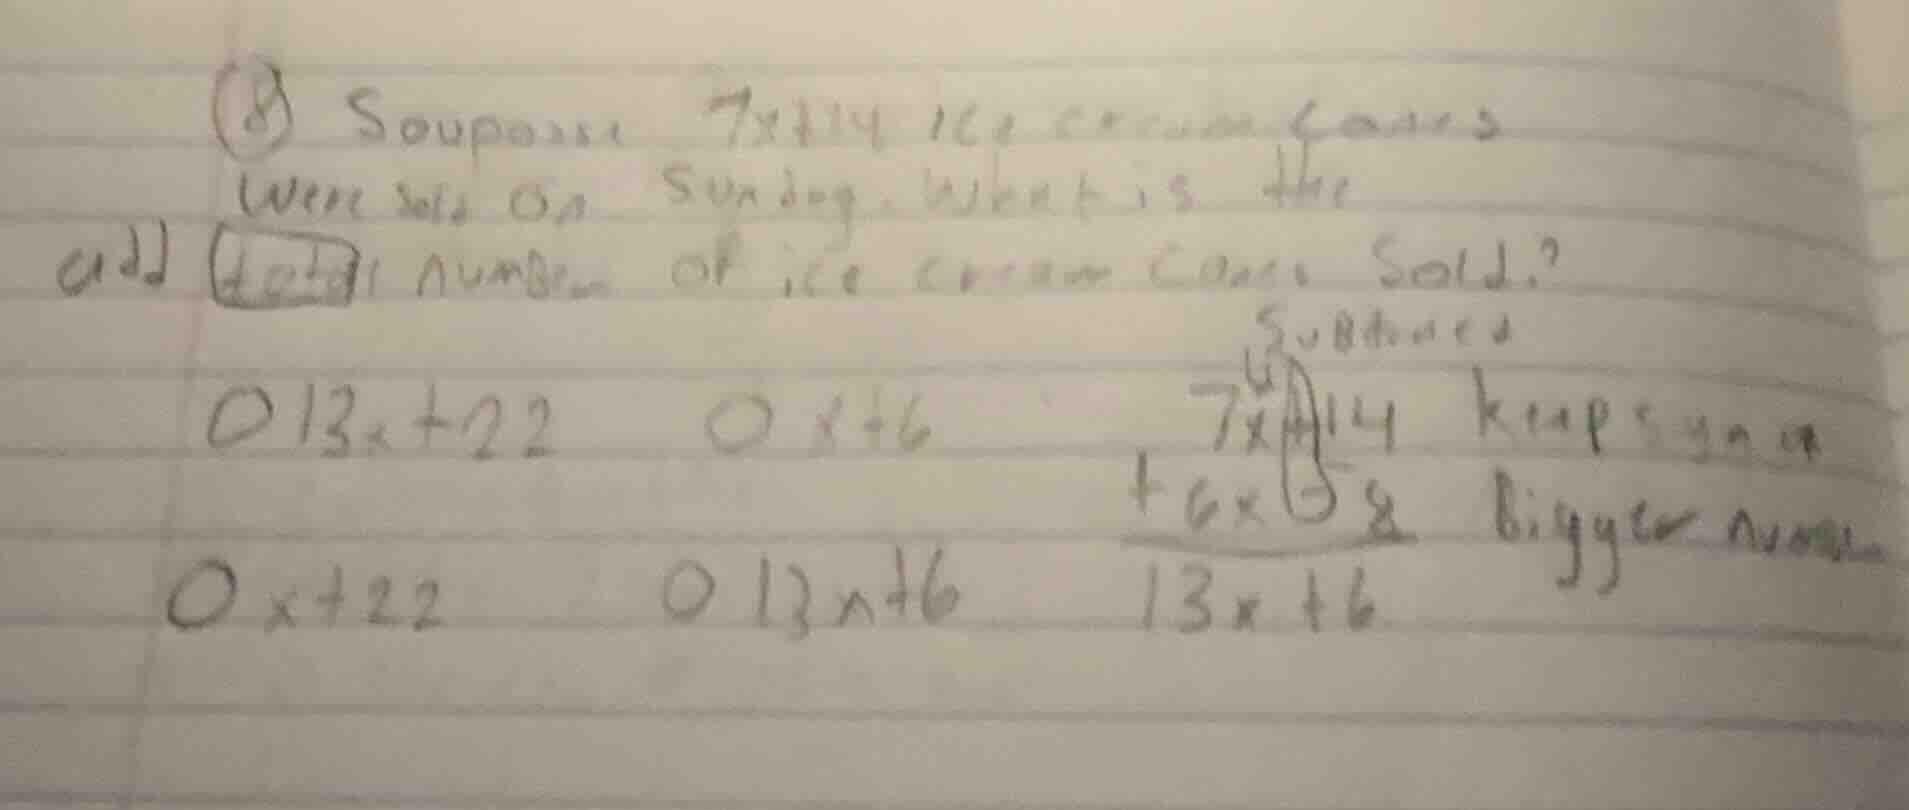 8 Soupose 7x+14 ice cream cones
were sold on Sunday. What is the
add total number of ice cream cones sold?
Subtract
O 13x+22 O x+6 7x+14 keep sign of
+ 6x-8 bigger number
O x+22 O 13x+6 13x+6